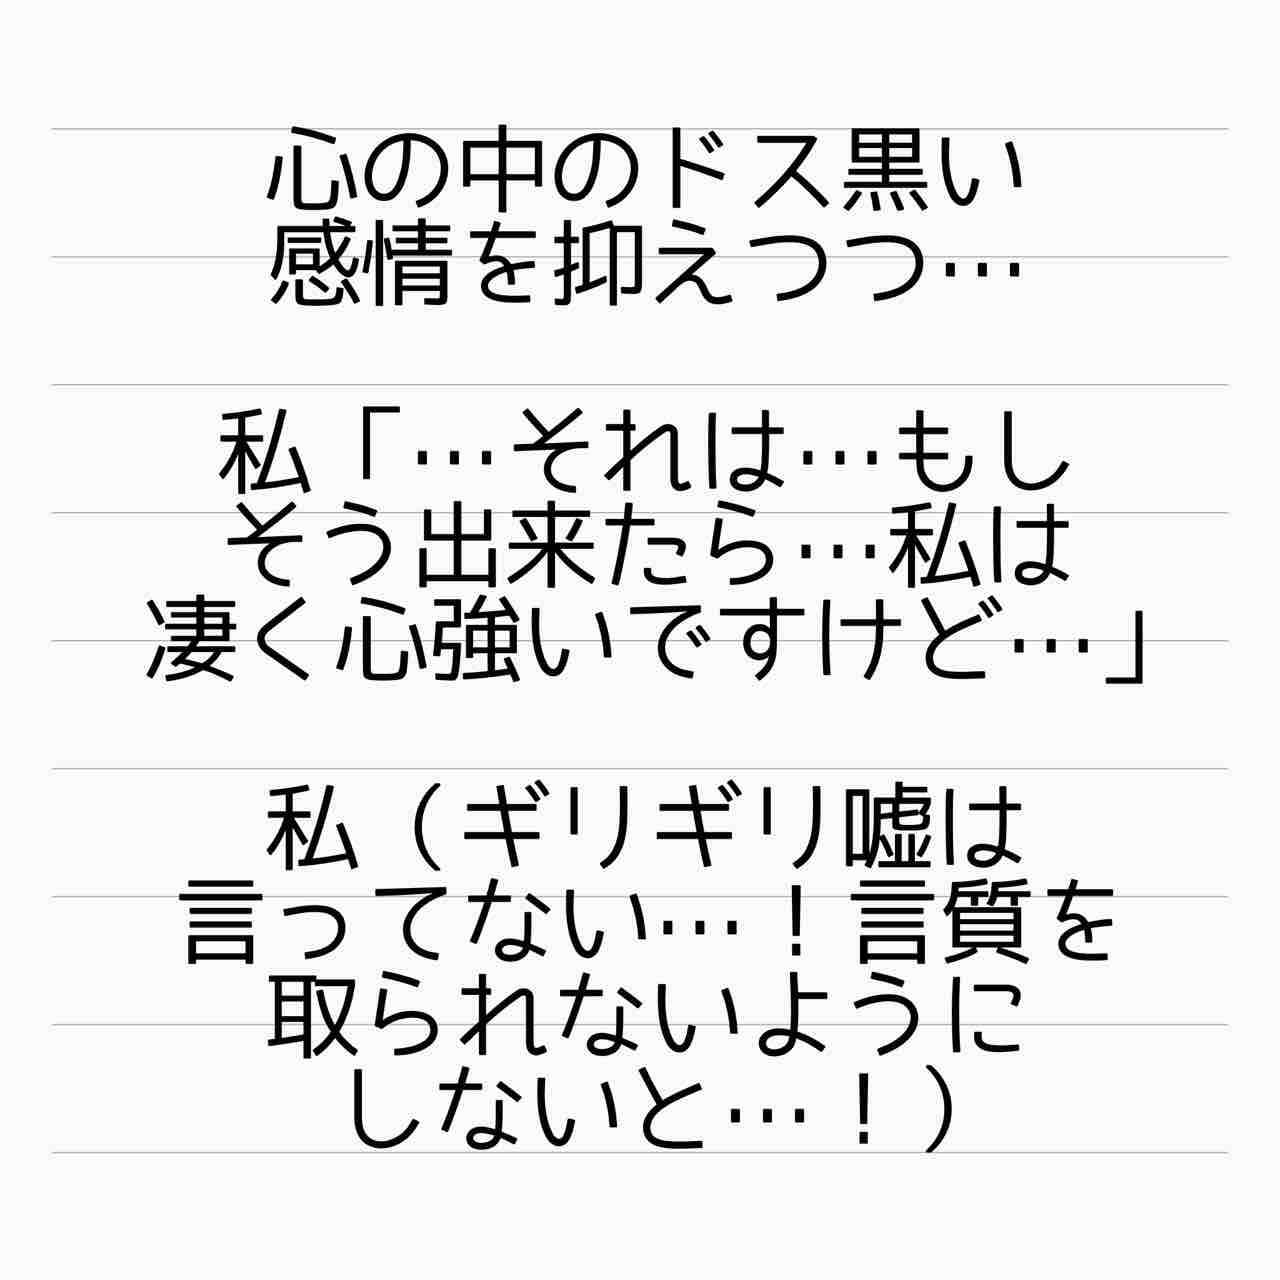 心の中のドス黒い
感情を抑えつつ…
私「…それは…もし
そう出来たら…私は
凄く心強いですけど…」
私（ギリギリ嘘は
言ってない…！言質を
取られないように
しないと…！）